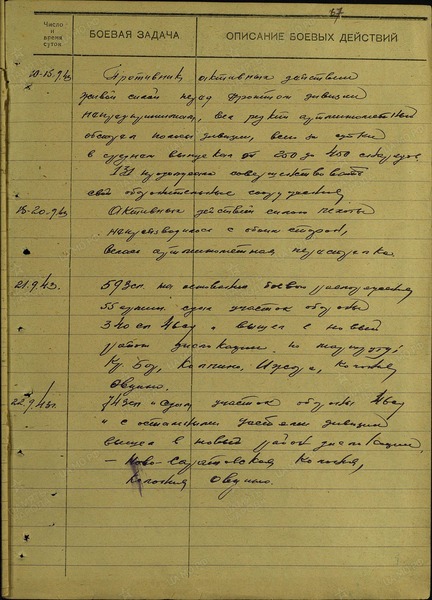 67
Число и время суток
БОЕВАЯ ЗАДАЧА
ОПИСАНИЕ БОЕВЫХ ДЕЙСТВИЙ
10-15.9.43 Противник активных действий
живой силой перед фронтом дивизии
не предпринимал, вел редкий артминометный
обстрел полосы дивизии,
в среднем выпуская от 250 до 450 снарядов
продолжала совершенствовать
свои оборонительные сооружения
15-20.9.43 Активных действий силами пехоты
не производилось с обеих сторон,
велась артминометная перестрелка.
21.9.43. 593сп. на основании боевого распоряжения
55 армии сдал участок обороны
340сп и вышел в новый
район дислокации по маршруту:
Кр. Бор, Колпино, Ижора, Колония
Овцино.
22.9.43г. сдал участок обороны
и с остальными частями дивизии
вышел в новый район дислокации
– Ново-Саратовская Колония,
Колония Овцино.